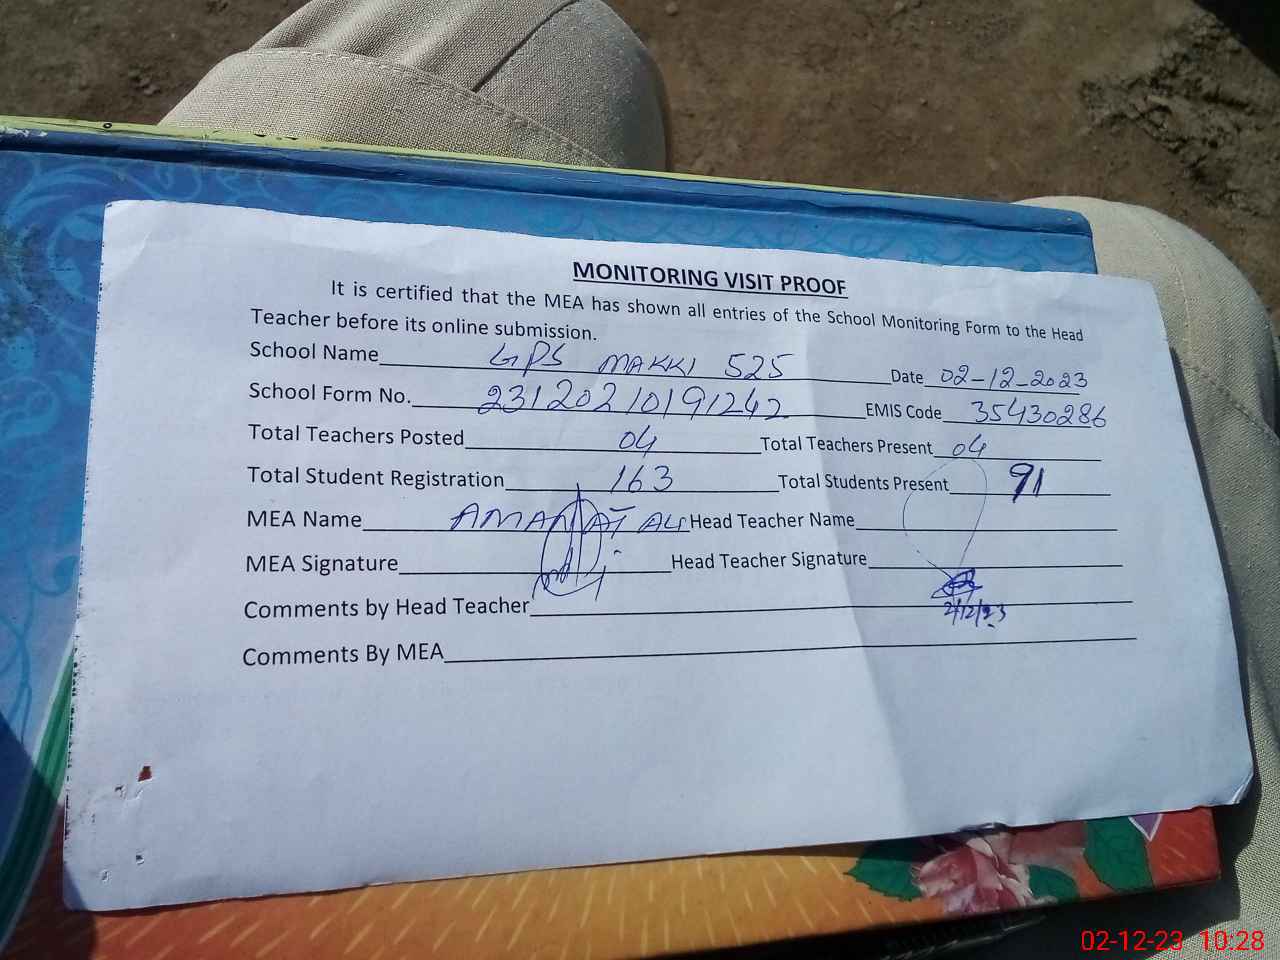 MONITORING VISIT PROOF
It is certified that the MEA has shown all entries of the School Monitoring Form to the Head
Teacher before its online submission.
School Name GPS MAKKI 525 Date 02-12-2023
School Form No. 23120210191242 EMIS Code 35430286
Total Teachers Posted 04 Total Teachers Present 04
Total Student Registration 163 Total Students Present 91
MEA Name AMANAT ALI Head Teacher Name
MEA Signature Head Teacher Signature
Comments by Head Teacher 2/12/23
Comments By MEA
02-12-23 10:28